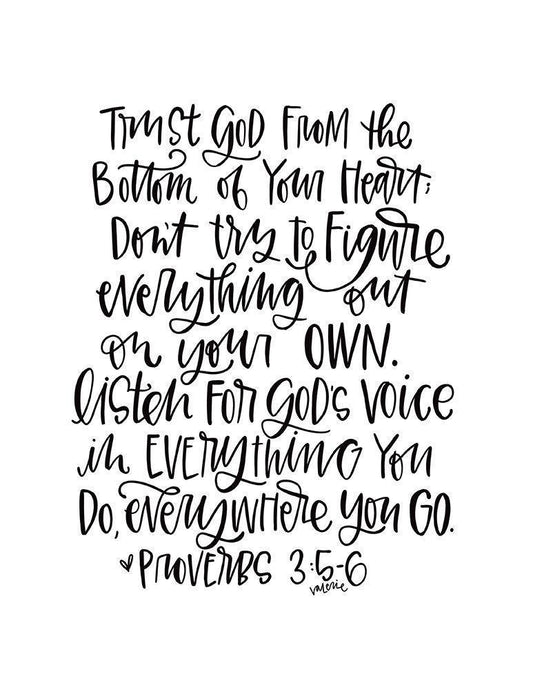 Trust God From the
Bottom of Your Heart;
Don't try to Figure
everything out
on your OWN.
listen For God's Voice
in EVERYthiNG You
Do, everywhere you GO.
♥ Proverbs 3:5-6
valerie